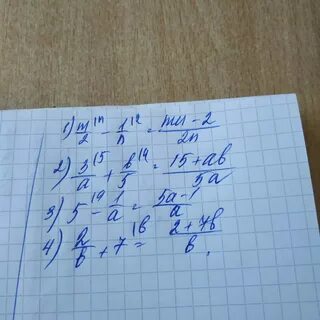 1) m/2 |n - 1/n |2 = mn - 2 / 2n
2) 3/a |5 + b/5 |a = 15 + ab / 5a
3) 5 |a - 1/a = 5a - 1 / a
4) 2/b + 7 |b = 2 + 7b / b .